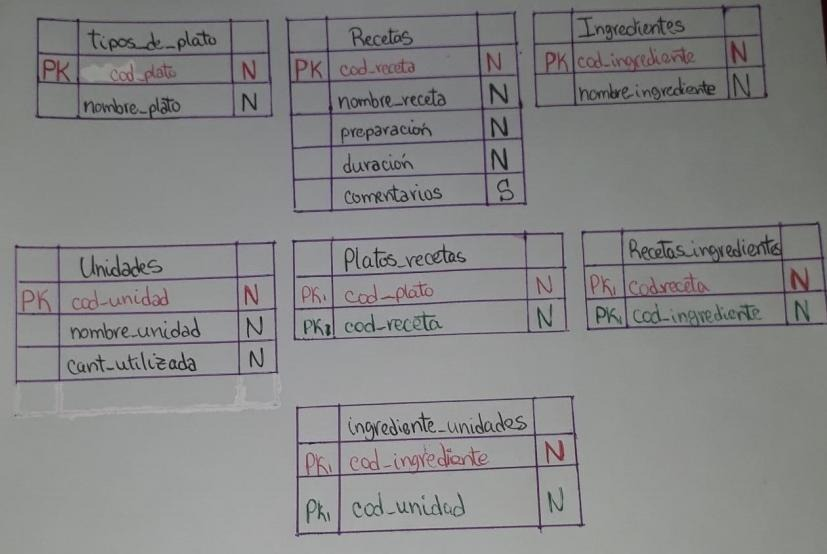 tipos_de_plato
PK cod_plato N
nombre_plato N
Recetas
PK cod_receta N
nombre_receta N
preparación N
duración N
comentarios S
Ingredientes
PK cod_ingrediente N
nombre_ingrediente N
Unidades
PK cod_unidad N
nombre_unidad N
cant_utilizada N
Platos_recetas
PK1 cod_plato N
PK2 cod_receta N
Recetas_ingredientes
PK1 cod_receta N
PK1 cod_ingrediente N
ingrediente_unidades
PK1 cod_ingrediente N
PK1 cod_unidad N